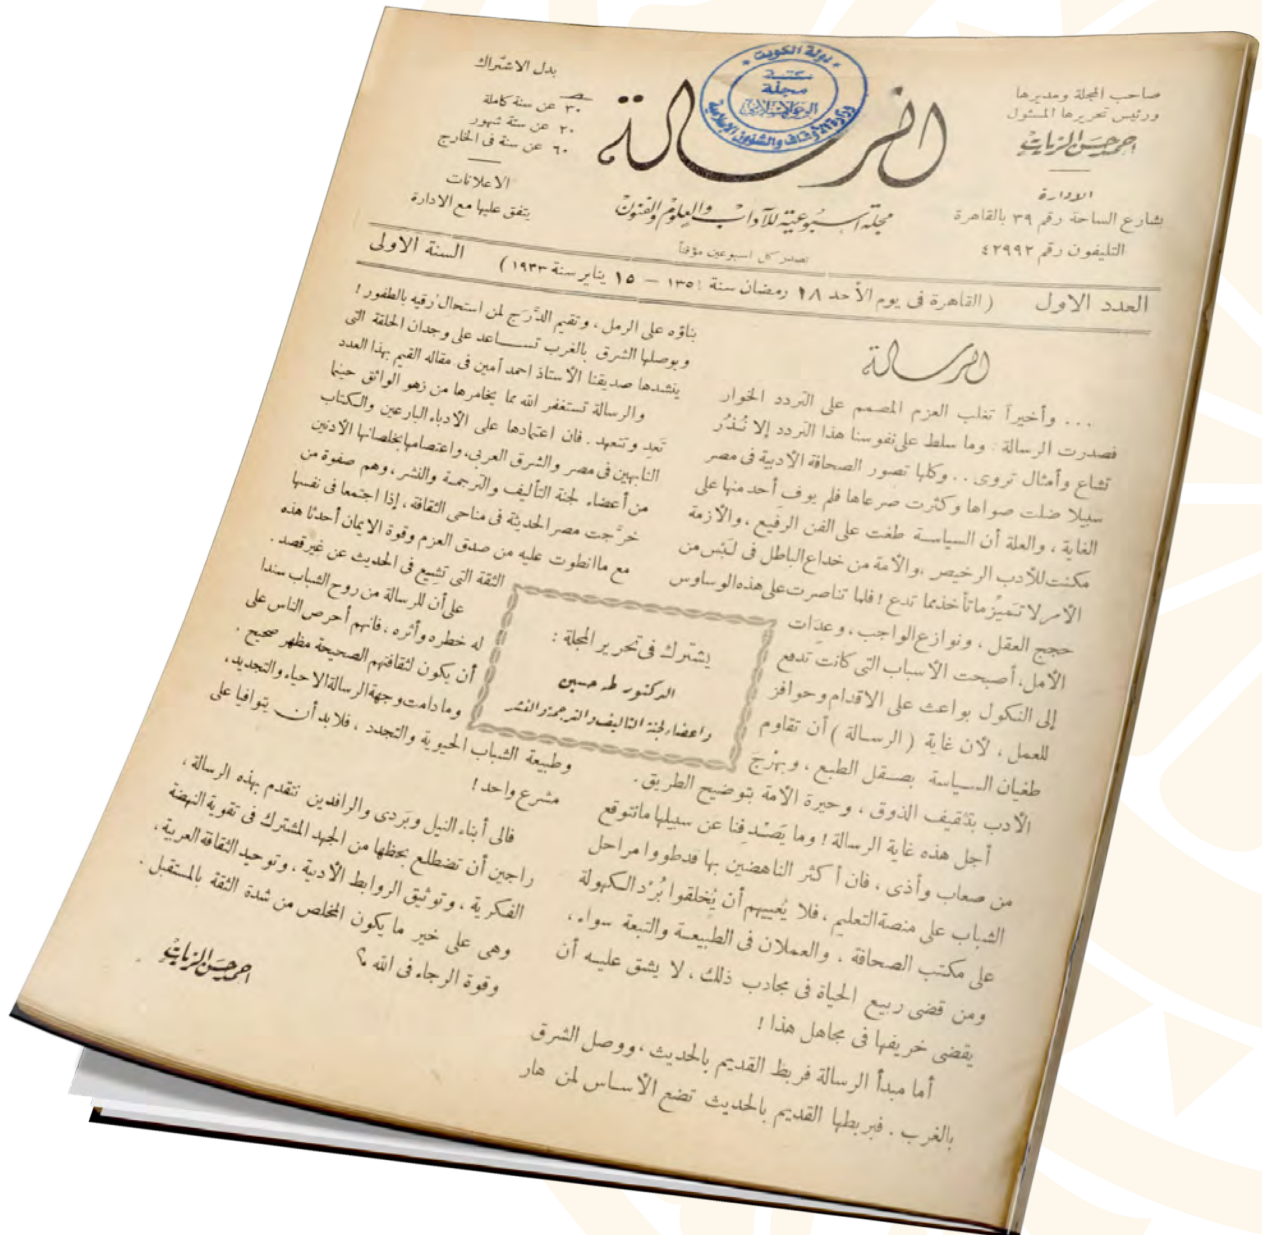 صاحب المجلة ومديرها
ورئيس تحريرها المسئول
احمد حسن الزيات
الادارة
بشارع الساحة رقم ٣٩ بالقاهرة
التليفون رقم ٤٢٩٩٢
الرسالة
دولة الكويت
مكتبة
مجلة
الوعي الإسلامي
وزارة الأوقاف والشؤون الإسلامية
مجلة اسبوعية للآداب والعلوم والفنون
تصدر كل اسبوعين مؤقتاً
بدل الاشتراك
٣٠ عن سنة كاملة
٢٠ عن ستة شهور
٦٠ عن سنة في الخارج
الاعلانات
يتفق عليها مع الادارة
العدد الاول ( القاهرة فى يوم الأحد ١٨ رمضان سنة ١٣٥١ — ١٥ يناير سنة ١٩٣٣ ) السنة الاولى
الرسالة
... وأخيراً تغلب العزم المصمم على التردد الخوار
فصدرت الرسالة . وما سلط على نفوسنا هذا التردد إلا نُذُر
تشاع وأمثال تروى .. وكلها تصور الصحافة الأدبية فى مصر
سبيلا ضلت صواها وكثرت صرعاها فلم يوفِ أحد منها على
الغاية ، والعلة أن السياسة طغت على الفن الرفيع ، والأزمة
مكنت للأدب الرخيص ،والأمة من خداع الباطل فى لَبْس من
الأمر لا تميِّز ما تأخذ مما تدع ! فلما تناصرت على هذه الوساوس
حجج العقل ، ونوازع الواجب ، وعِدَات
الأمل، أصبحت الأسباب التى كانت تدفع
إلى النكول بواعث على الاقدام وحوافز
للعمل ، لأن غاية ( الرسالة ) أن تقاوم
طغيان السياسة بصقل الطبع ، وبهْرَج
الأدب بتثقيف الذوق ، وحيرة الأمة بتوضيح الطريق .
أجل هذه غاية الرسالة ! وما يَصْدِفنا عن سبيلها ما نتوقع
من صعاب وأذى ، فان أكثر الناهضين بها قد طووا مراحل
الشباب على منصة التعليم ، فلا يُعييهم أن يُخلقوا بُرْد الكهولة
على مكتب الصحافة ، والعملان فى الطبيعة والتبعة سواء ،
ومن قضى ربيع الحياة فى مجادب ذلك ، لا يشق عليه أن
يقضى خريفها فى مجاهل هذا !
أما مبدأ الرسالة فربط القديم بالحديث ، ووصل الشرق
بالغرب . فبربطها القديم بالحديث تضع الأساس لمن هار
بناؤه على الرمل ، وتقيم الدَّرَج لمن استحال رقيه بالطفور !
وبوصلها الشرق بالغرب تساعد على وجدان الحلقة التى
ينشدها صديقنا الأستاذ احمد أمين فى مقاله القيم بهذا العدد
والرسالة تستغفر الله مما يخامرها من زهو الواثق حينما
تَعِد وتتعهد . فان اعتمادها على الأدباء البارعين والكتاب
النابهين فى مصر والشرق العربى، واعتصامها بخلصائها الأدنين
من أعضاء لجنة التأليف والترجمة والنشر ، وهم صفوة من
خرَّجت مصر الحديثة فى مناحى الثقافة ، إذا اجتمعا فى نفسها
مع ما انطوت عليه من صدق العزم وقوة الايمان أحدثا هذه
الثقة التى تشيع فى الحديث عن غير قصد .
على أن للرسالة من روح الشباب سندا
له خطره وأثره ، فانهم أحرص الناس على
أن يكون لثقافتهم الصحيحة مظهر صحيح .
وما دامت وجهة الرسالة الاحياء والتجديد ،
وطبيعة الشباب الحيوية والتجدد ، فلابد أن يتوافيا على
مشرع واحد !
فالى أبناء النيل وبَرَدى والرافدين نتقدم بهذه الرسالة ،
راجين أن تضطلع بحظها من الجهد المشترك فى تقوية النهضة
الفكرية ، وتوثيق الروابط الأدبية ، وتوحيد الثقافة العربية ،
وهى على خير ما يكون المخلص من شدة الثقة بالمستقبل .
وقوة الرجاء فى الله ؟
احمد حسن الزيات
يشترك فى تحرير المجلة :
الدكتور طه حسين
واعضاء لجنة التأليف والترجمة والنشر